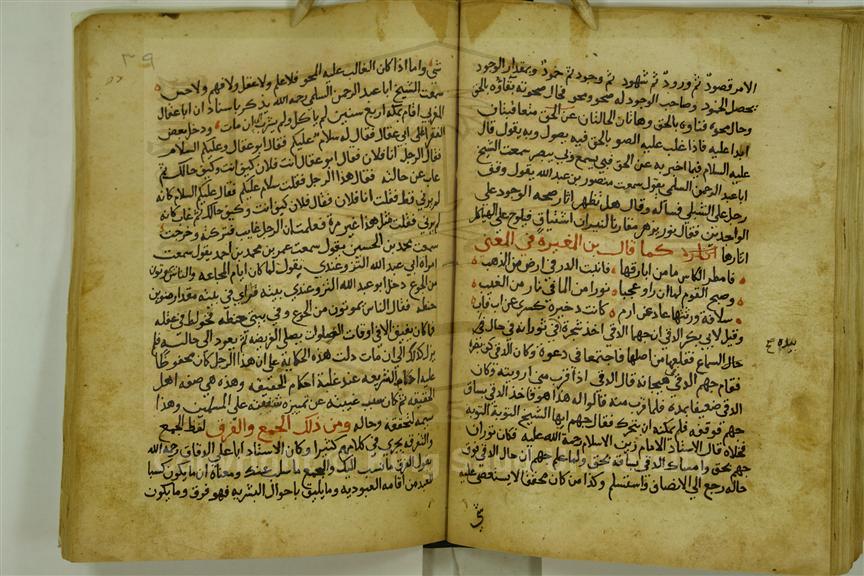 الامر قصود ثم ورود ثم شهود ثم وجود ثم خمود وبمقدار الوجود
يحصل الخمود وصاحب الوجود له صحو ومحو فحال صحوه بقاؤه بالحق
وحال محوه فناؤه بالحق وهاتان الحالتان متعاقبتان
ابدا عليه فاذا غلب عليه الصحو بالحق فبه يصول وبه يقول قال
عليه السلام فيما اخبر به عن الحق فبي يسمع وبي يبصر سمعت الشيخ
ابا عبد الرحمن السلمي يقول سمعت منصور بن عبد الله يقول وقف
رجل على الشبلي فساله وقال هل تظهر اثار صحة الوجود على
الواجدين فقال نور يزهر مقارنا لنيران اشتياق فيلوح على الهياكل
اثارها كما قال بن المعتز
فامطر الكاس ما من ابارقها فانبت الدر في ارض من الذهب
وسبح القوم لما ان راوا عجبا نورا من الما في نار من العنب
سلافة ورثتها عاد عن ارم كانت ذخيرة كسرى عن اب فاب
وقيل لابي بكر الدقي ان جهما الدقي اخذ شجرة في حال
حال السماع فقلعها من اصلها فاجتمعا في دعوة وكان الدقي كف بصره
فقام جهم الدقي هيجانه قال الدقي اذا قرب مني ارونيه وكان
الدقي ضعيفا فلما قرب منه قالوا له هذا هو فاخذ الدقي بساق
جهم فوقفه فلم يمكنه ان يتحرك فقال جهم ايها الشيخ التوبة التوبة
فخلاه قال الاستاذ الامام زين الاسلام رحمة الله عليه فكان ثوران
جهم بحق وامساك الدقي بساقه بحق ولما علم جهم ان حال الدقي فوق
حاله رجع الى الانصاف واستسلم وكذا من كان بحق لا يستعصي عليه
شي واما اذا كان الغالب عليه المحو فلا علم ولا عقل ولا فهم ولا حس
سمعت الشيخ ابا عبد الرحمن السلمي رحمه الله يذكر باسناد ان ابا عقال
المغربي اقام بمكة اربع سنين لم ياكل ولم يشرب الى ان مات ودخل بعض
الفقرا على ابي عقال فقال له سلام عليكم فقال ابو عقال وعليكم السلام
فقال الرجل انا فلان فقال ابو عقال انت فلان كيف انت وكيف حالك ثم
غاب عن حالته فقال هذا الرجل فقلت سلام عليكم فقال عليكم السلام كانه
لم يرني قط فقلت انا فلان فقال فلان كيف انت وكيف حالك ثم غاب كانه
لم يرني ففعلت مثل هذا غير مرة فعلمت ان الرجل غايب فتركته وخرجت
سمعت محمد بن الحسين يقول سمعت عمر بن محمد بن احمد يقول سمعت
امراة ابي عبد الله التروغندي يقول لما كان ايام المجاعة والناس يموتون
من الجوع دخل ابو عبد الله التروغندي بيته فراى في بيته مقدار منوين
حنطة فقال الناس يموتون من الجوع وفي بيتي حنطة فخولط في عقله
فما كان يفيق الا في اوقات الصلوات يصلي الفريضة ثم يعود الى حالته فلم
يزل كذلك الى ان مات دلت هذه الحكاية على ان هذا الرجل كان محفوظا
عليه احكام الشريعة عند غلبة احكام الحقيقة وهذه هي صفة اهل
الحقيقة ثم كان سبب غيبته عن تمييزه شفقته على المسلمين وهذا
سمة لتحققه وحاله ومن ذلك الجمع والفرق لفظ الجمع
والتفرقة يجري في كلامهم كثيرا وكان الاستاد ابا علي الدقاق رحمه الله
يقول الفرق ما نسب اليك والجمع ما سلب عنك ومعناه ان ما يكون كسبا
للعبد من اقامة العبودية وما يليق باحوال البشرية فهو فرق وما يكون